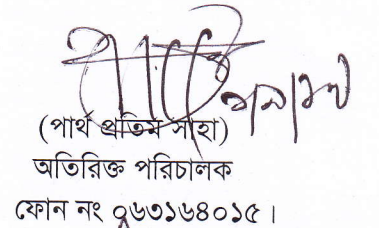 (পার্থ প্রতিম সাহা)
অতিরিক্ত পরিচালক
ফোন নং ০৬৩১৬৪০১৫।